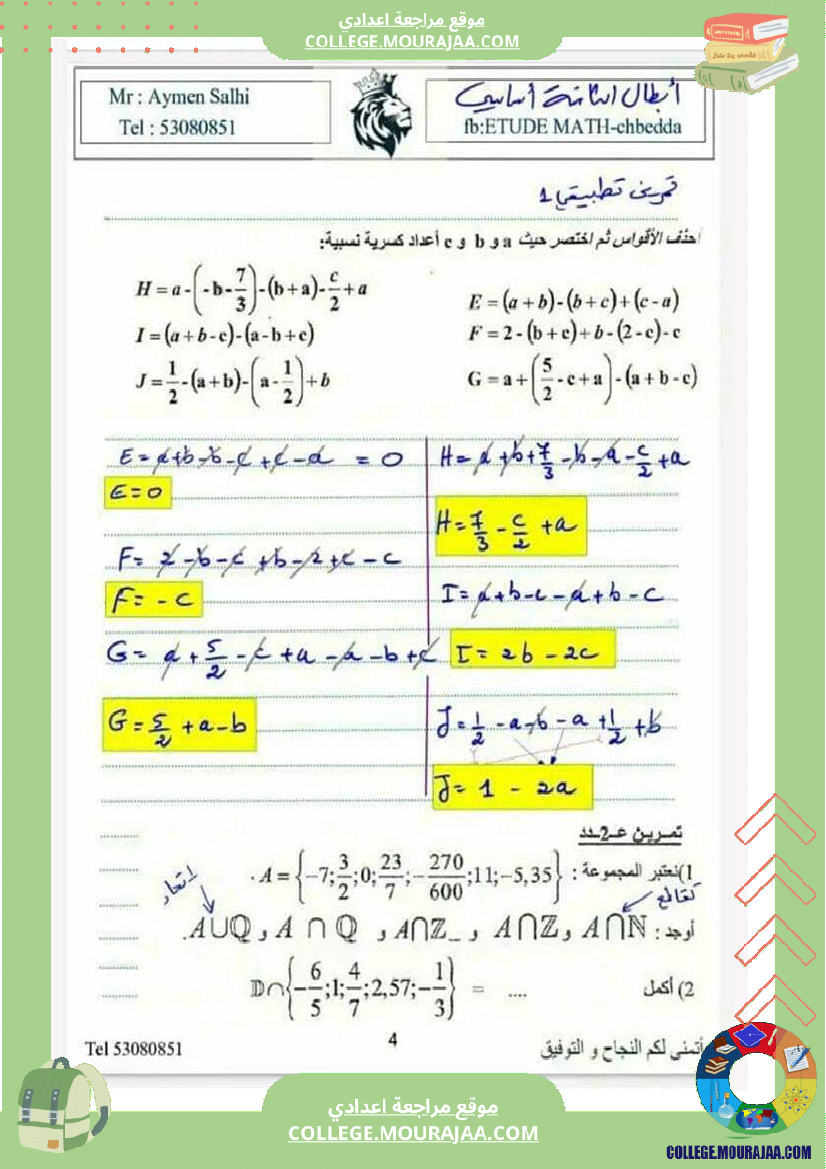 موقع مراجعة اعدادي
COLLEGE.MOURAJAA.COM
Mr : Aymen Salhi
Tel : 53080851
أبطال الثامنة أساسي
fb:ETUDE MATH-chbedda
تمرين تطبيقي 1
احذف الأقواس ثم اختصر حيث a و b و c أعداد كسرية نسبية:
H = a - (-b - 7/3) - (b + a) - c/2 + a
E = (a + b) - (b + c) + (c - a)
I = (a + b - c) - (a - b + c)
F = 2 - (b + c) + b - (2 - c) - c
J = 1/2 - (a + b) - (a - 1/2) + b
G = a + (5/2 - c + a) - (a + b - c)
E = a + b - b - c + c - a = 0
E = 0
F = 2 - b - c + b - 2 + c - c
F = - c
G = a + 5/2 - c + a - a - b + c
G = 5/2 + a - b
H = a + b + 7/3 - b - a - c/2 + a
H = 7/3 - c/2 + a
I = a + b - c - a + b - c
I = 2b - 2c
J = 1/2 - a - b - a + 1/2 + b
J = 1 - 2a
تمرين عـ2ـدد
1) نعتبر المجموعة : A = {-7; 3/2; 0; 23/7; -270/600; 11; -5,35} .
اتحاد
تقاطع
أوجد : A∩ℕ و A∩ℤ و A∩ℤ_ و A ∩ ℚ و A∪ℚ.
2) أكمل 𝔻∩{-6/5; 1; 4/7; 2,57; -1/3} = ....
Tel 53080851
4
أتمنى لكم النجاح و التوفيق
موقع مراجعة اعدادي
COLLEGE.MOURAJAA.COM
COLLEGE.MOURAJAA.COM